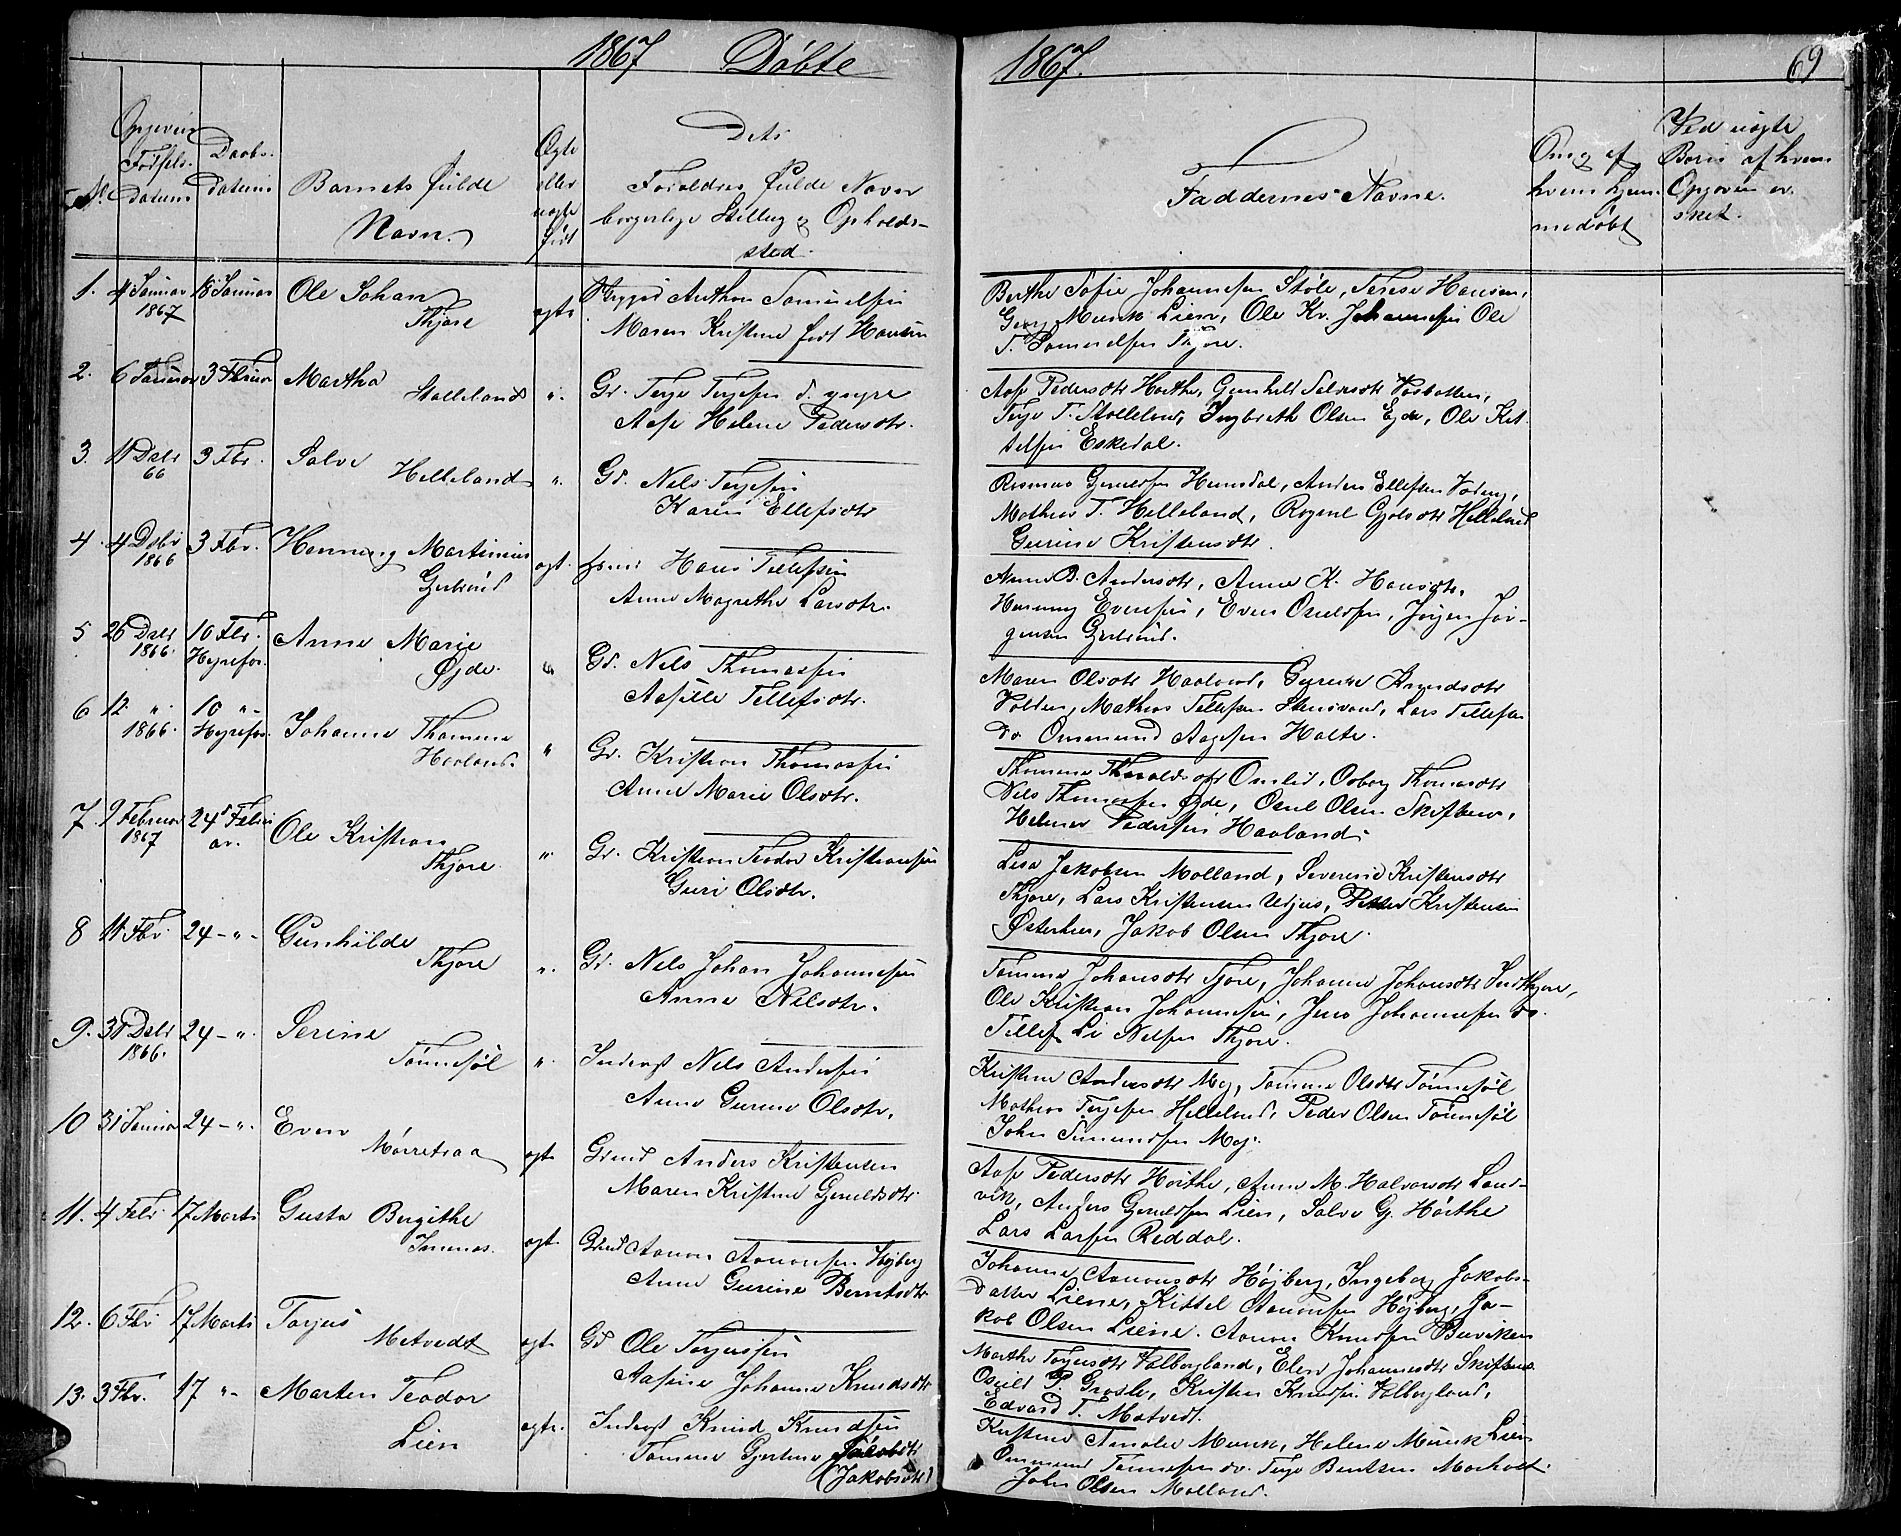 1867 Døbte
1867. 69
No.
Opgiven Fødsels Datum
Daabs Datum
Barnets Fulde Navn.
Ægte eller uægte født
Dets Forældres Fulde Navn borgerlige Stilling og Opholdssted.
Faddernes Navne.
Om og af hvem hjemmedøbt
Ved uægte Børn af hvem Opgiven er sket.
1. 4 Januar 1867 18 Januar Ole Johan Thjore ægte Anthon Samuelsen
Maren Kristine født Hansen
Berthe Sofie Johannesen Støle, Terese Hansen,
Georg Munk Lien, Ole Kr. Johannesen Ole
T. Samuelsen Thjore.
2. 6 Januar 3 Februar Martha Stalleland " Gr. Terje Terjesen d. yngre
Aase Helene Pedersdtr.
Aase Pedersdtr Hørthe, Gunhild
Terje T. Stalleland, Ingbreth Olsen Eyde, Ole Kit-
telsen Eskedal.
3. 11 Dsbr 66 3 Fbr. Salve Helleland " Gd. Nils Terjesen
Karen Ellefsdtr
Rasmus Gundersen Humsdal, Anders Ellefsen
Mathias T. Helleland, Helleland
Gurine Kristensdtr.
4. 4 Dsbr 1866 3 Fbr. Henning Martinius ægt. Hans Tellefsen
Anne Magrethe Larsdtr.
Anne B. Andersdtr, Anne K. Hansdtr,
Henning Evensen, Even Jørgen Jør-
gensen
5 26 Dsbr 1866. 10 Fbr. Høyrefos. Anne Marie Øjde. " Gd. Nils Thomassen
Aasille Tellefsdtr.
Maren Olsdtr Haaland, Gurine Knudsdtr
Volden, Mathias Tellefsen Stensvand, Lars Tellefsen
do Ommund Aagesen Holte.
6 12 " 1866. 10 " Høyrefos. Johanne Thomine Haaland. " Gr. Kristian Thomassen
Anne Marie Olsdtr.
Thomine Omlid, Thomasdtr
Nils Thomassen Øjde, Osul Olsen Skiftenes,
Helmer Pedersen Haaland.
7. 9 Februar 1867 24 Februar. Ole Kristian Thjore. " Gr. Kristian Teodor Kristiansen
Guri Olsdtr.
Lisa Jakobsen Molland, Severine Kristensdtr
Thjore, Lars Kristensen Urjus, Peder Kristensen
Østerhus, Jakob Olsen Thjore.
8 11 Fbr. 24 - " - Gunhilde Thjore " Gd. Nils Johan Johannesen
Anne Nilsdtr.
Tomine Johansdtr Tjore, Johanne Johansdtr Thjore,
Ole Kristian Johannesen, Jens Johannesen do.
Tellef Li Nelsen Thjore.
9. 31 Dsbr 1866. 24 - " Serine Tønnesøl " Inderst Nils Andersen
Anne Gurine Olsdtr.
Kristine Andersdtr Moj, Tomine Olsdtr Tønnesøl
Mathias Terjesen Helleland, Peder Olsen Tønnesøl
John Simundsen Moj.
10 31 Januar 24 - " Even Mørretraa ægt Grmd Anders Kristensen
Maren Kristine Gunuldsdtr.
Aase Pedersdtr Hørthe, Anne M. Halvorsdtr Land-
vik, Anders Lien, Salve G. Hørthe
Lars Larsen Reddal.
11. 4 Febr 17 Marts Gusta Bergithe Imenes. ægt. Grmd Aanon Aanonsen Højberg
Anne Gurine Berntsdtr
Johanne Aanonsdtr Højberg, Ingeborg Jakobs-
datter Liene, Kittel Aanonsen Højberg, Ja-
kob Olsen Liene. Aanon Knudsen Beviken
12. 6 Fbr 17 Marts Torjus Mosvedt ægt. Gd Ole Torjussen
Aasine Johanne Knudsdtr
Marthe Torjusdtr Valborgland, Elen Johannesdtr Skiftenes
Osuld P. Groste, Kristen Knudsen Valborgland,
Edvard T. Møtvedt.
13. 3 Fbr. 17 " Marten Teodor Lien ægte. Inderst Knud Knudsen
Tomine Gurine Jakobsdtr
(Jakobsdtr)
Kristine Amalie Munk, Helene Munk Lien
Ommund Tønnesen do. Terje Bentsen Morholt
John Olsen Molland.